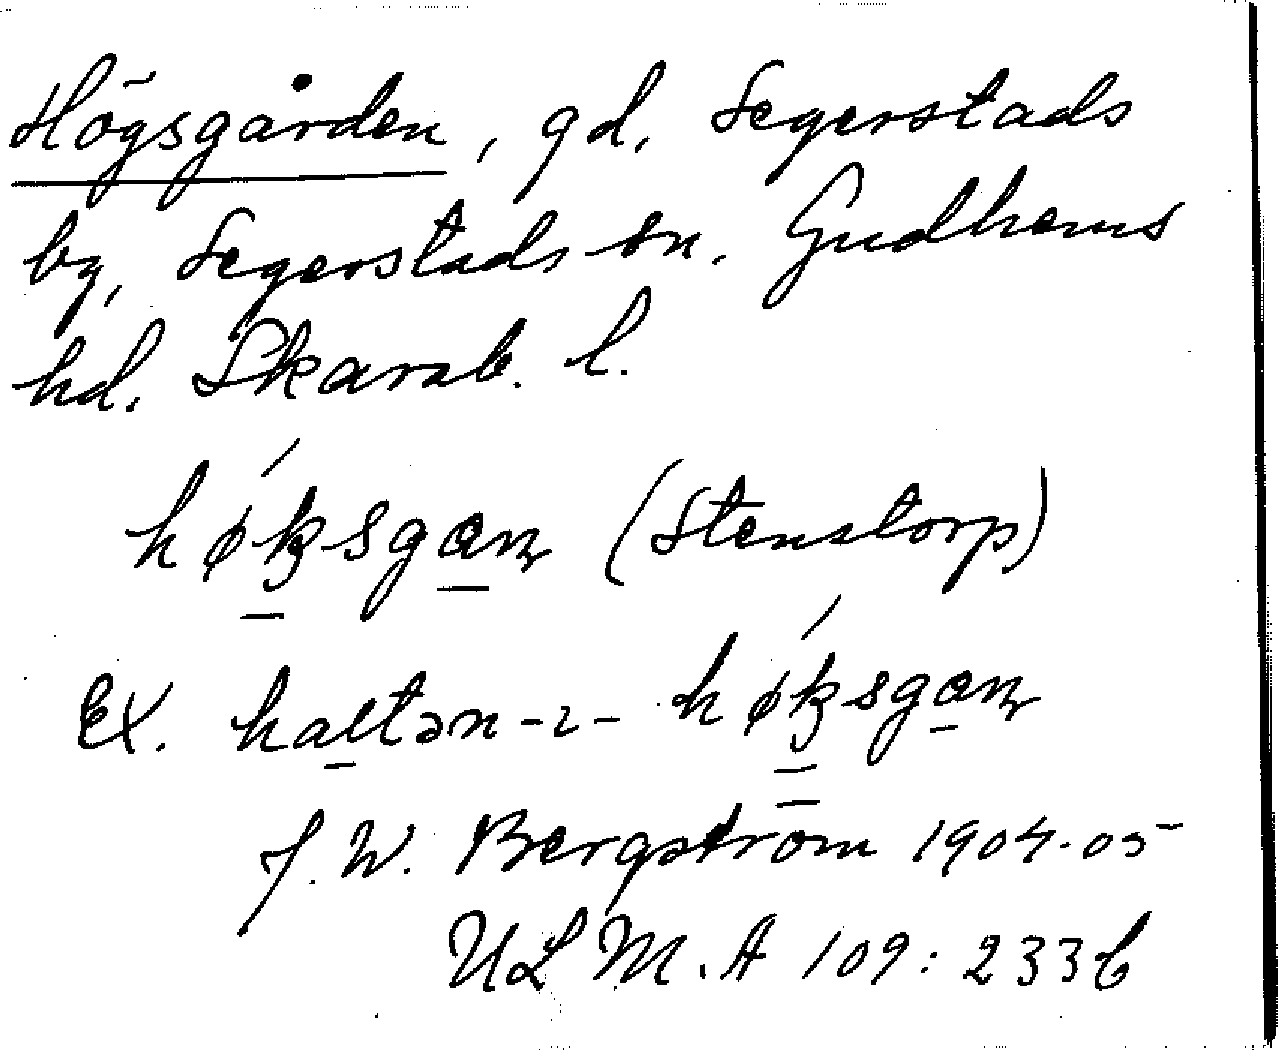 Högsgården, gd. Segerstads
by, Segerstads sn. Gudhems
hd. Skarab. l.
høksgan (Stenstorp)
Ex. haltən -ı- høksgan
J. W. Bergström 1904-05
ULM.A 109: 233 b